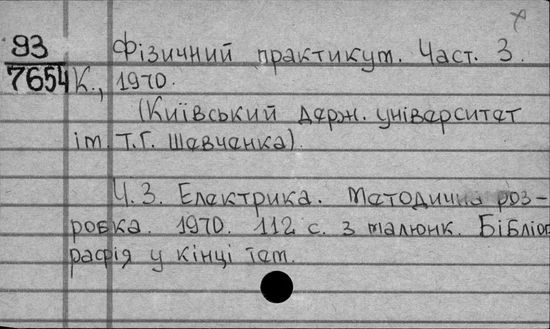 93 Фізичний практикум. Част. 3.
7654 К., 1970.
(Київський держ. університет
ім. Т.Г. Шевченка).
Ч. 3. Електрика. Методична роз-
робка. 1970. 112 с. з малюнк. Бібліог
рафія у кінці тем.